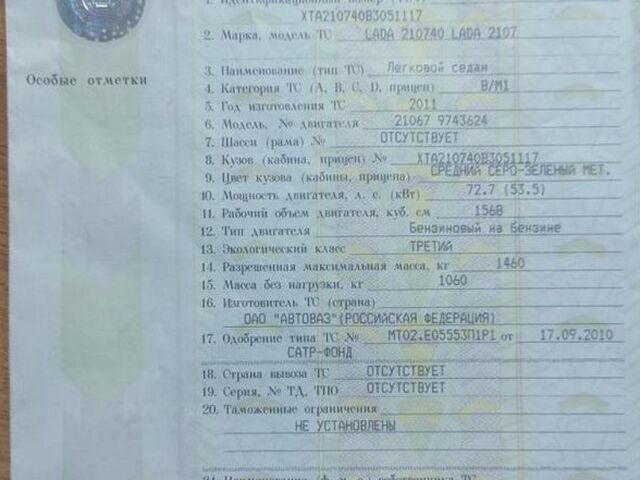 1. Идентификационный номер (VIN)
XTA210740B3051117
2. Марка, модель ТС LADA 210740 LADA 2107
Особые отметки
3. Наименование (тип ТС) Легковой седан
4. Категория ТС (A, B, C, D, прицеп) B/M1
5. Год изготовления ТС 2011
6. Модель, № двигателя 21067 9743624
7. Шасси (рама) № ОТСУТСТВУЕТ
8. Кузов (кабина, прицеп) № XTA210740B3051117
9. Цвет кузова (кабины, прицепа) СРЕДНИЙ СЕРО-ЗЕЛЕНЫЙ МЕТ.
10. Мощность двигателя, л. с. (кВт) 72.7 (53.5)
11. Рабочий объем двигателя, куб. см 1568
12. Тип двигателя Бензиновый на бензине
13. Экологический класс ТРЕТИЙ
14. Разрешенная максимальная масса, кг 1460
15. Масса без нагрузки, кг 1060
16. Изготовитель ТС (страна)
ОАО "АВТОВАЗ"(РОССИЙСКАЯ ФЕДЕРАЦИЯ)
17. Одобрение типа ТС № МТ02.Е05553П1Р1 от 17.09.2010
САТР-ФОНД
18. Страна вывоза ТС ОТСУТСТВУЕТ
19. Серия, № ТД, ТПО ОТСУТСТВУЕТ
20. Таможенные ограничения
НЕ УСТАНОВЛЕНЫ
21. Наименование (ф. и. о.) собственника ТС